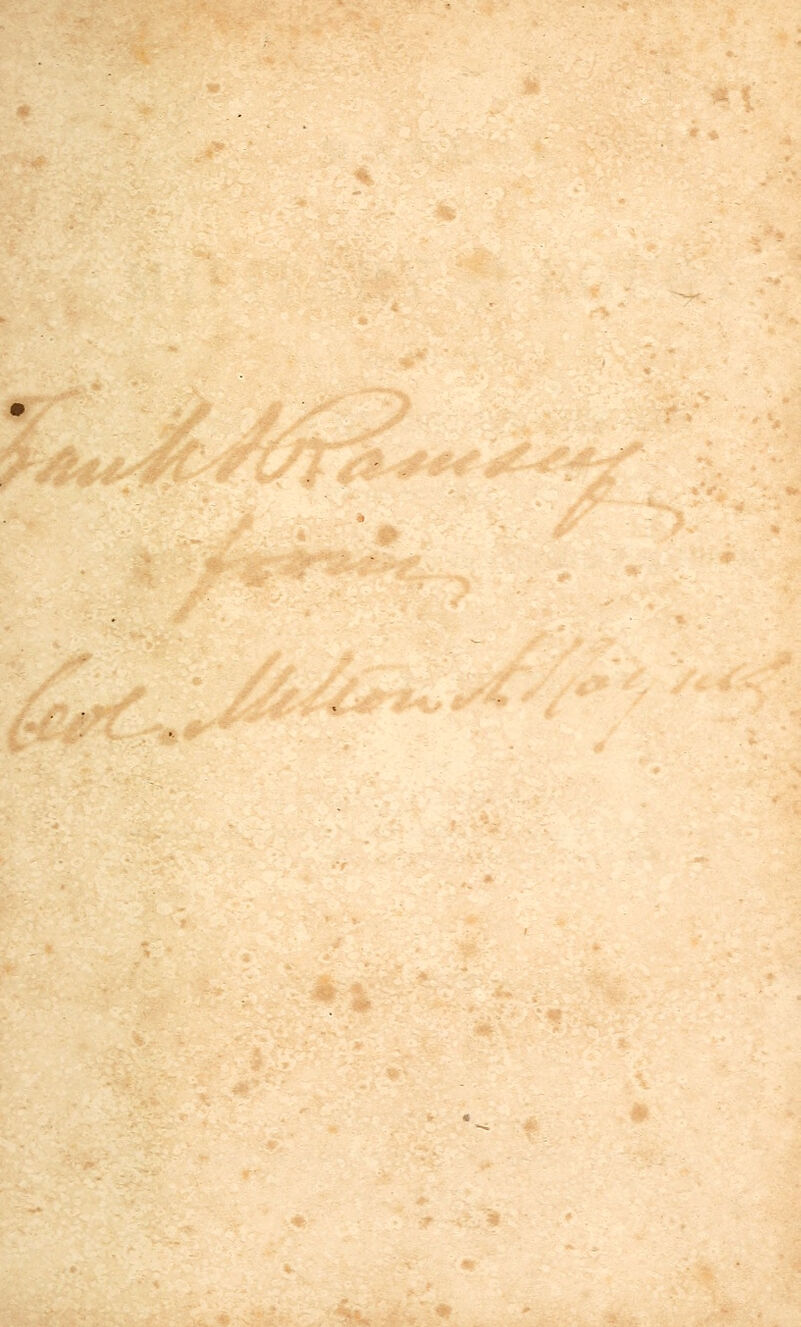 Frank A Ramsey
from
Col. Milton A Haynes